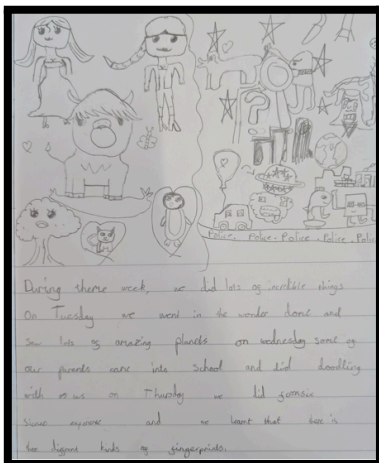 Police. Police. Police. Police. Police
During theme week, we did lots of incredible things
On Tuesday we went in the wonder dome and
saw lots of amazing planets on wednesday some of
our parents came into School and did doodling
with us on Thursday we did
and we learnt that there is
kinds of fingerprints.